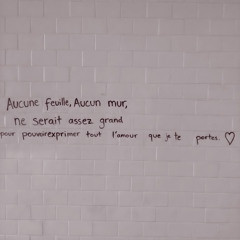 Aucune feuille, Aucun mur,
ne serait assez grand
pour pouvoirexprimer tout l'amour que je te portes. ♡